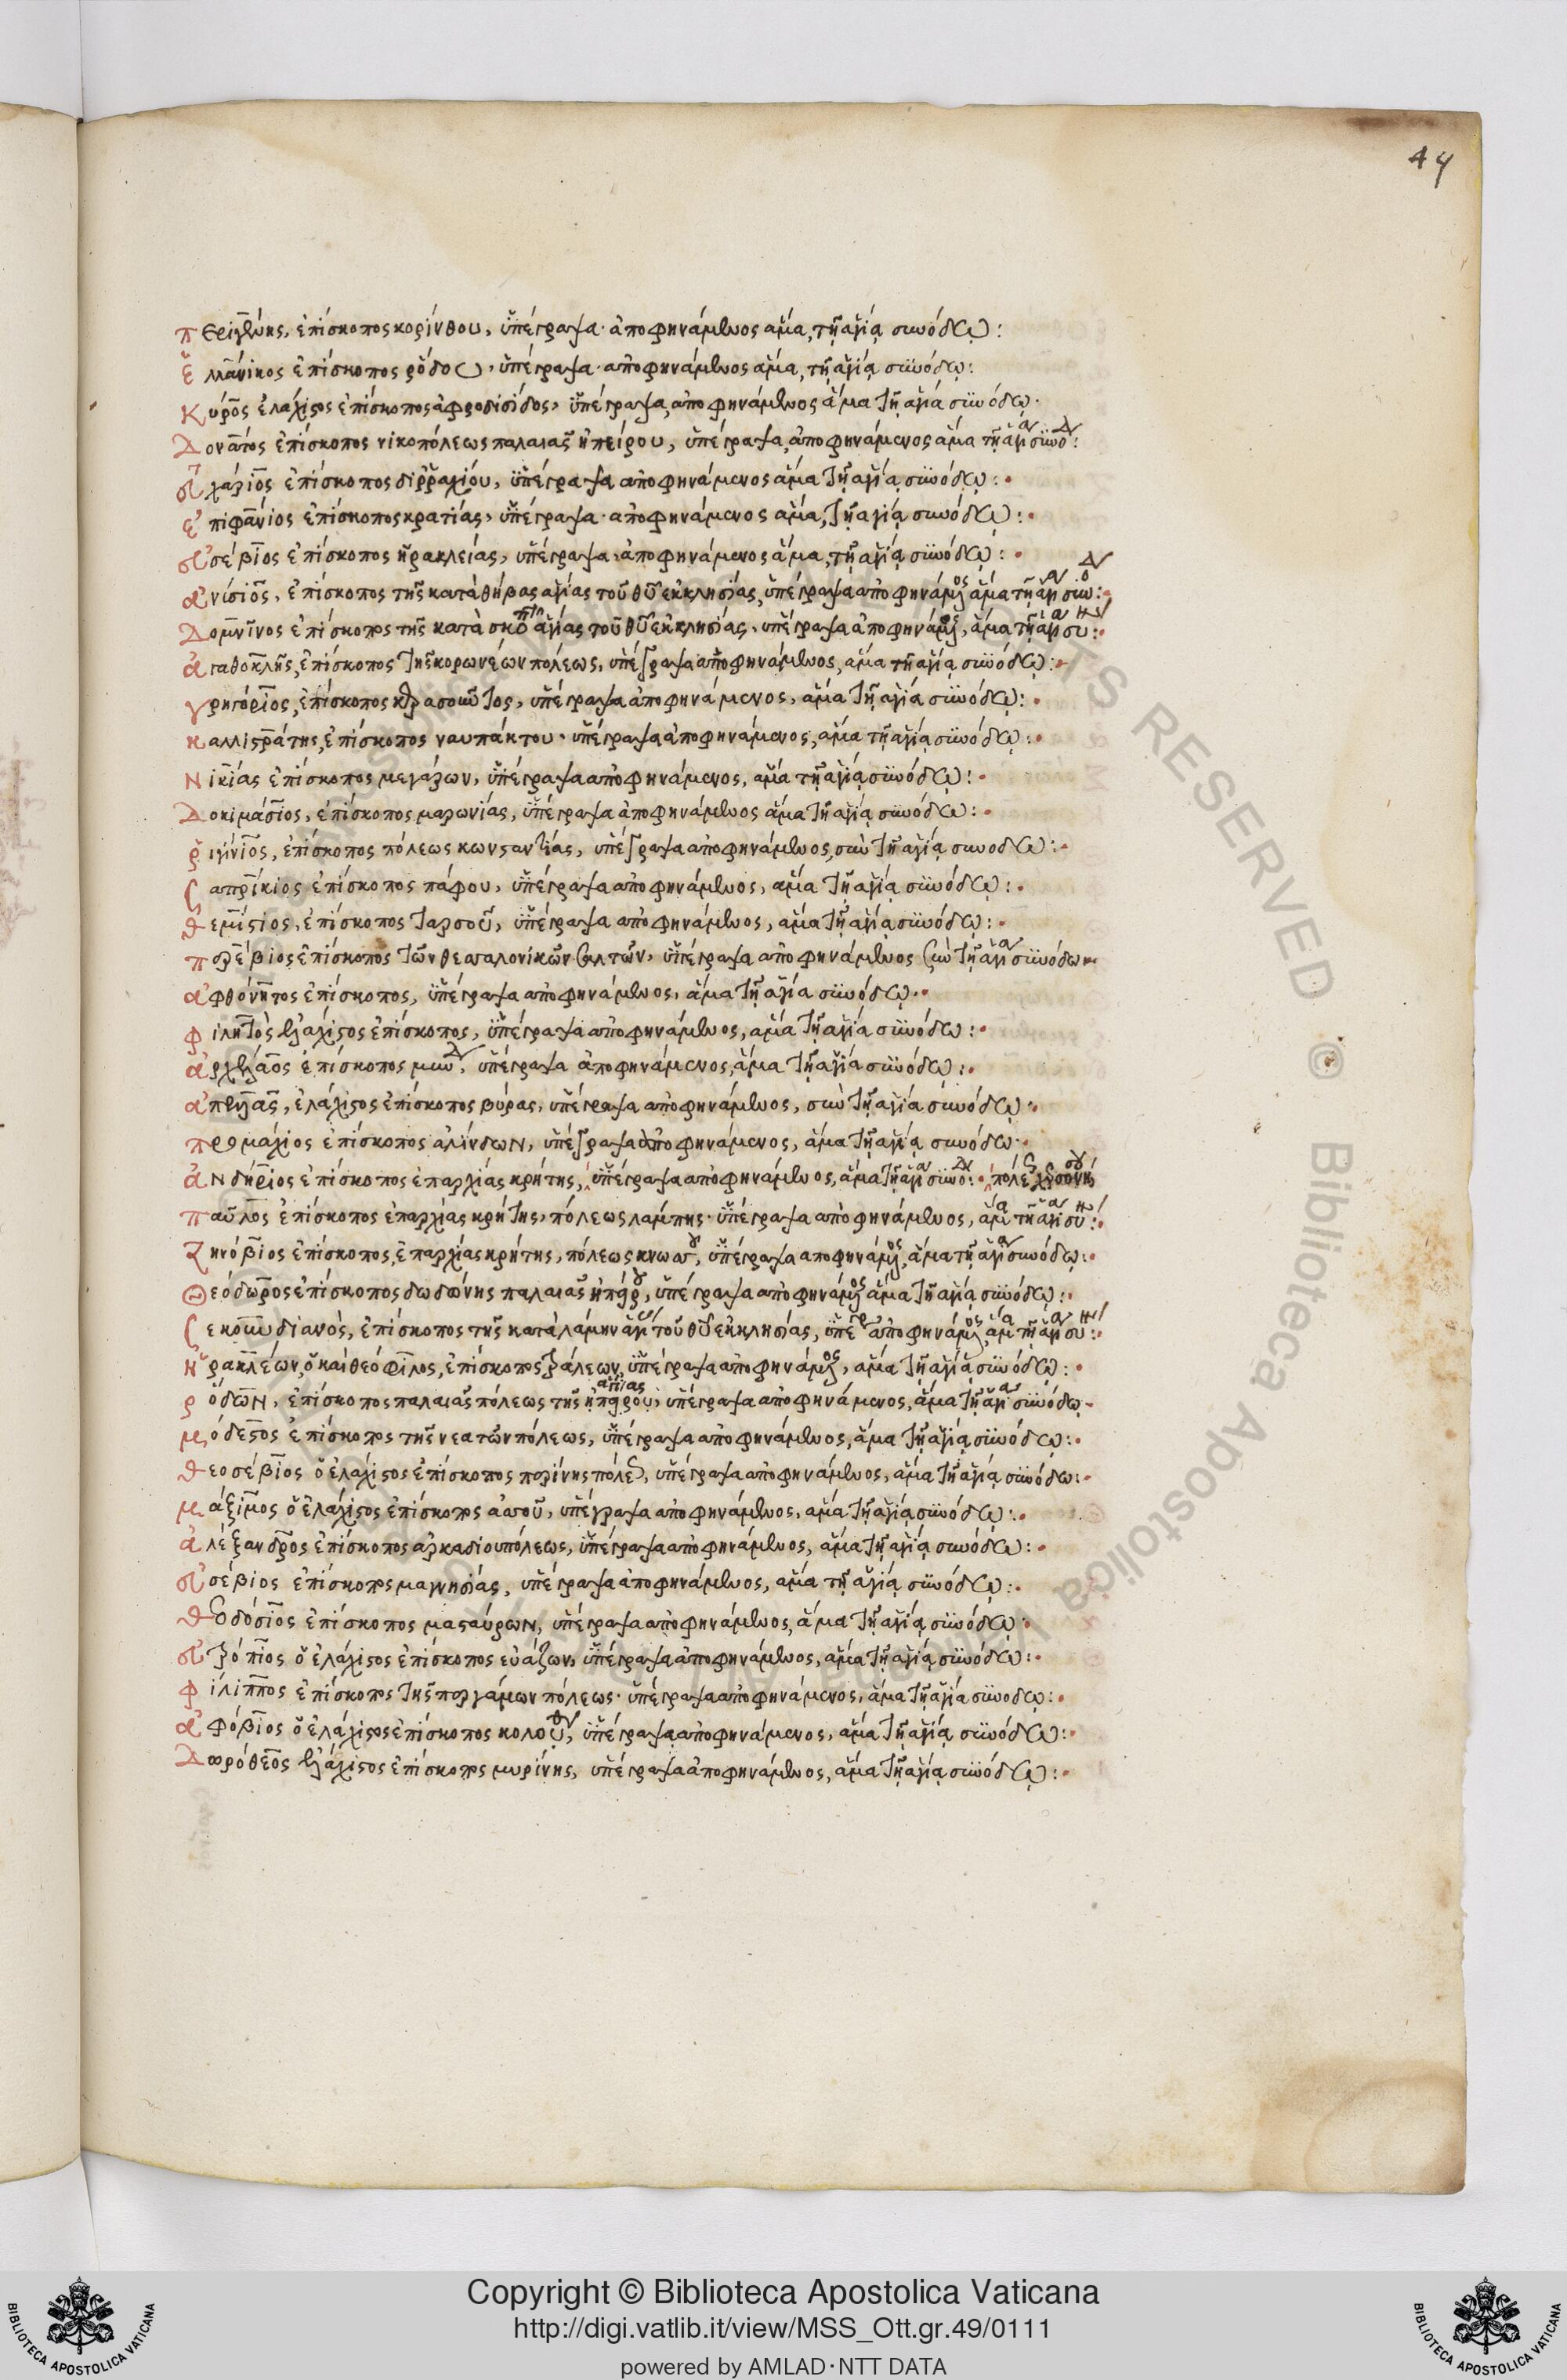 44
περιγένης, ἐπίσκοπος κορίνθου, ὑπέγραψα· ἀποφηνάμενος ἅμα, τῇ ἁγίᾳ συνόδῳ:
ἑλλάνικος ἐπίσκοπος ῥόδου, ὑπέγραψα· ἀποφηνάμενος ἅμα, τῇ ἁγίᾳ συνόδῳ:
κῦρος ἐλάχιστος ἐπίσκοπος ἀφροδισίδος, ὑπέγραψα, ἀποφηνάμενος ἅμα τῇ ἁγίᾳ συνόδῳ.
Δονάτος ἐπίσκοπος νικοπόλεως παλαιᾶς ἠπείρου, ὑπέγραψα, ἀποφηνάμενος ἅμα τῇ ἁγίᾳ συνόδ:
εὐχάριος ἐπίσκοπος διρραχίου, ὑπέγραψα ἀποφηνάμενος ἅμα τῇ ἁγίᾳ συνόδῳ:
ἐπιφάνιος ἐπίσκοπος κρατίας, ὑπέγραψα· ἀποφηνάμενος ἅμα, τῇ ἁγίᾳ συνόδῳ:
εὐσέβιος ἐπίσκοπος ἡρακλείας, ὑπέγραψα, ἀποφηνάμενος ἅμα, τῇ ἁγίᾳ συνόδῳ:
ἀνίσιος, ἐπίσκοπος τῆς κατὰ θήβας ἁγίας τοῦ θυ ἐκκλησίας, ὑπέγραψα ἀποφηνάμενος ἅμα τῇ ἁγίᾳ συνόδ:
Δομνῖνος ἐπίσκοπος τῆς κατὰ σκόπελ ἁγίας τοῦ θυ ἐκκλησίας, ὑπέγραψα ἀποφηνάμενος, ἅμα τῇ ἁγίᾳ συ:
ἀγαθοκλῆς, ἐπίσκοπος τῆς κορωνέων πόλεως, ὑπέγραψα ἀποφηνάμενος, ἅμα τῇ ἁγίᾳ συνόδῳ:
γρηγόριος, ἐπίσκοπος κερασοῦντος, ὑπέγραψα ἀποφηνάμενος, ἅμα τῇ ἁγίᾳ συνόδῳ:
καλλικράτης, ἐπίσκοπος ναυπάκτου· ὑπέγραψα ἀποφηνάμενος, ἅμα τῇ ἁγίᾳ συνόδῳ:
Νικίας ἐπίσκοπος μεγάρων, ὑπέγραψα ἀποφηνάμενος, ἅμα τῇ ἁγίᾳ συνόδῳ:
Δοκιμάσιος, ἐπίσκοπος μαρωνίας, ὑπέγραψα ἀποφηνάμενος ἅμα τῇ ἁγίᾳ συνόδῳ:
ῥιγίνιος, ἐπίσκοπος πόλεως κωνσταντίας, ὑπέγραψα ἀποφηνάμενος, σὺν τῇ ἁγίᾳ συνοδῳ:
Σαπρίκιος ἐπίσκοπος πάφου, ὑπέγραψα ἀποφηνάμενος, ἅμα τῇ ἁγίᾳ συνόδῳ:
θεμίστιος, ἐπίσκοπος ἰασσοῦ, ὑπέγραψα ἀποφηνάμενος, ἅμα τῇ ἁγίᾳ συνόδῳ:
ἐπίσκοπος τῶν θεσσαλονίκων ὑπέγραψα ἀποφηνάμενος σὺν τῇ ἁγίᾳ συνόδῳ
ἀφθόνητος ἐπίσκοπος, ὑπέγραψα ἀποφηνάμενος, ἅμα τῇ ἁγίᾳ συνόδῳ.
φιλητὸς ἐλάχιστος ἐπίσκοπος, ὑπέγραψα ἀποφηνάμενος, ἅμα τῇ ἁγίᾳ συνόδῳ:
ἀρχέλαος ἐπίσκοπος μυνδ, ὑπέγραψα ἀποφηνάμενος, ἅμα τῇ ἁγίᾳ συνόδῳ:
ἀπελλᾶς, ἐλάχιστος ἐπίσκοπος βύρας, ὑπέγραψα ἀποφηνάμενος, σὺν τῇ ἁγίᾳ συνόδῳ.
προμάχιος ἐπίσκοπος ἀλίνδων, ὑπέγραψα ἀποφηνάμενος, ἅμα τῇ ἁγίᾳ συνόδῳ.
ἀνδήριος ἐπίσκοπος ἐπαρχίας κρήτης, ὑπέγραψα ἀποφηνάμενος, ἅμα τῇ ἁγίᾳ συνόδ: πόλεως χερσονή
παῦλος ἐπίσκοπος ἐπαρχίας κρήτης, πόλεως λάμπης· ὑπέγραψα ἀποφηνάμενος, ἅμα τῇ ἁγίᾳ συ:
Ζηνόβιος ἐπίσκοπος, ἐπαρχίας κρήτης, πόλεως κνωσοῦ, ὑπέγραψα ἀποφηνάμενος, ἅμα τῇ ἁγίᾳ συνόδῳ:
Θεόδωρος ἐπίσκοπος δωδώνης παλαιᾶς ἠπείρου, ὑπέγραψα ἀποφηνάμενος ἅμα τῇ ἁγίᾳ συνόδῳ:
Σεκουνδιανὸς, ἐπίσκοπος τῆς κατὰ λάμην ἁγίας τοῦ θυ ἐκκλησίας, ὑπέγρ ἀποφηνάμενος, ἅμα τῇ ἁγίᾳ συ:
ἡρακλέων, ὁ καὶ θεόφιλος, ἐπίσκοπος τράλεων, ὑπέγραψα ἀποφηνάμενος, ἅμα τῇ ἁγίᾳ συνόδῳ:
ῥόδων, ἐπίσκοπος παλαιᾶς πόλεως τῆς ὑπέγραψα ἀποφηνάμενος, ἅμα τῇ ἁγίᾳ συνόδῳ
μόδεστος ἐπίσκοπος τῆς νεατῶν πόλεως, ὑπέγραψα ἀποφηνάμενος, ἅμα τῇ ἁγίᾳ συνόδῳ:
θεοσέβιος ὁ ἐλάχιστος ἐπίσκοπος πριίνης πόλεως, ὑπέγραψα ἀποφηνάμενος, ἅμα τῇ ἁγίᾳ συνόδῳ:
μάξιμος ὁ ἐλάχιστος ἐπίσκοπος ἀσσοῦ, ὑπέγραψα ἀποφηνάμενος, ἅμα τῇ ἁγίᾳ συνόδῳ:
ἀλέξανδρος ἐπίσκοπος ἀρκαδιουπόλεως, ὑπέγραψα ἀποφηνάμενος, ἅμα τῇ ἁγίᾳ συνόδῳ:
εὐσέβιος ἐπίσκοπος μαγνησίας, ὑπέγραψα ἀποφηνάμενος, ἅμα τῇ ἁγίᾳ συνόδῳ:
θεοδόσιος ἐπίσκοπος μασταύρων, ὑπέγραψα ἀποφηνάμενος, ἅμα τῇ ἁγίᾳ συνόδῳ
εὐτρόπιος ὁ ἐλάχιστος ἐπίσκοπος εὐάζων, ὑπέγραψα ἀποφηνάμενος, ἅμα τῇ ἁγίᾳ συνόδῳ:
φίλιππος ἐπίσκοπος τῆς περγάμων πόλεως· ὑπέγραψα ἀποφηνάμενος, ἅμα τῇ ἁγίᾳ συνοδῳ:
ἀφόβιος ὁ ἐλάχιστος ἐπίσκοπος κολο ὑπέγραψα, ἀποφηνάμενος, ἅμα τῇ ἁγίᾳ συνόδῳ:
Δωρόθεος ἐλάχιστος ἐπίσκοπος μυρίνης, ὑπέγραψα ἀποφηνάμενος, ἅμα τῇ ἁγίᾳ συνόδῳ:
RIGHTS RESERVED © Biblioteca Apostolica Vaticana
Copyright © Biblioteca Apostolica Vaticana
http://digi.vatlib.it/view/MSS_Ott.gr.49/0111
powered by AMLAD·NTT DATA
BIBLIOTECA APOSTOLICA VATICANA
BIBLIOTECA APOSTOLICA VATICANA